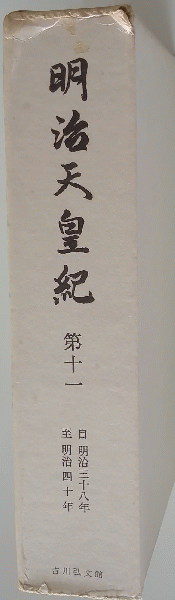 明治天皇紀
第十一
自 明治三十八年
至 明治四十年
吉川弘文館